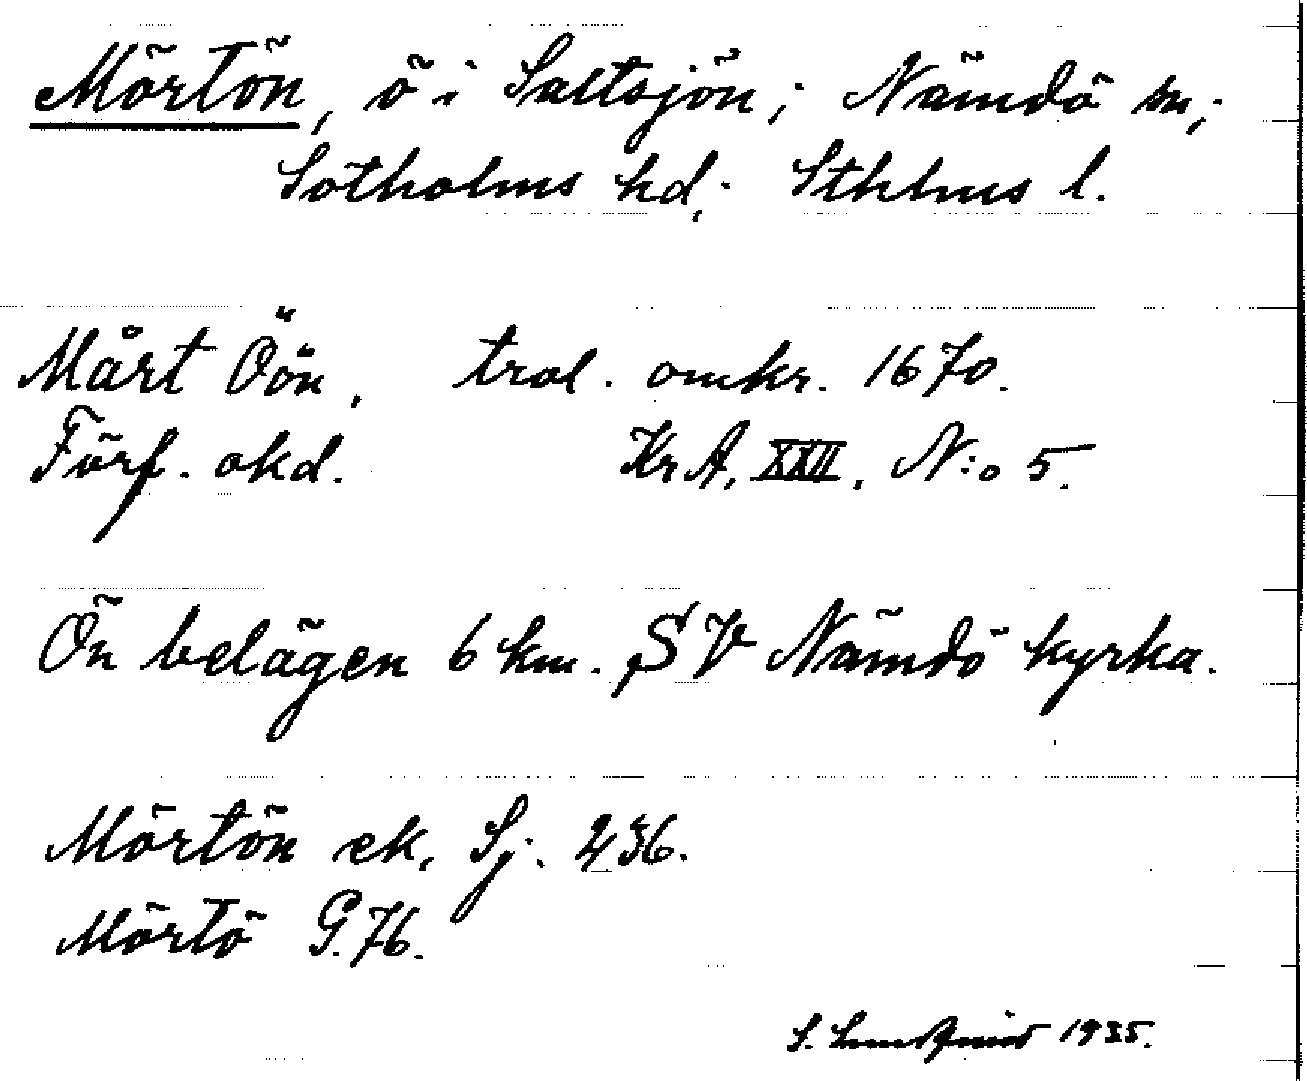 Mörtön, ö i Saltsjön; Nämdö sn;
Sotholms hd; Sthlms l.
Mårt Öön, trol. omkr. 1670.
Förf. okd. KrA, XXII, N:o 5.
Ön belägen 6 km. SV Nämdö kyrka.
Mörtön ek. Sj. 236.
Mörtö G. 76.
S. 1935.